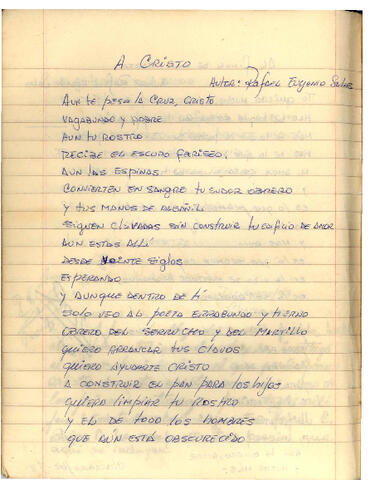 A CRISTO
Autor: Rafael Eugenio Salas
AUN TE PESA LA CRUZ, CRISTO
VAGABUNDO Y POBRE
AUN TU ROSTRO
RECIBE EL ESCUPO FARISEO
AUN LAS ESPINAS
CONVIERTEN EN SANGRE TU SUDOR OBRERO
Y TUS MANOS DE ALBAÑIL
SIGUEN CLAVADAS SIN CONSTRUIR TU EDIFICIO DE AMOR
AUN ESTAS ALLI
DESDE VEINTE SIGLOS
ESPERANDO
Y AUNQUE DENTRO DE TI
SOLO VEO AL POETA ERRABUNDO Y TIERNO
OBRERO DEL SERRUCHO Y DEL MARTILLO
QUIERO ARRANCAR TUS CLAVOS
QUIERO AYUDARTE CRISTO
A CONSTRUIR EL PAN PARA LOS HIJOS
QUIERO LIMPIAR TU ROSTRO
Y EL DE TODO LOS HOMBRES
QUE AÚN ESTÁ OBSCURECIDO